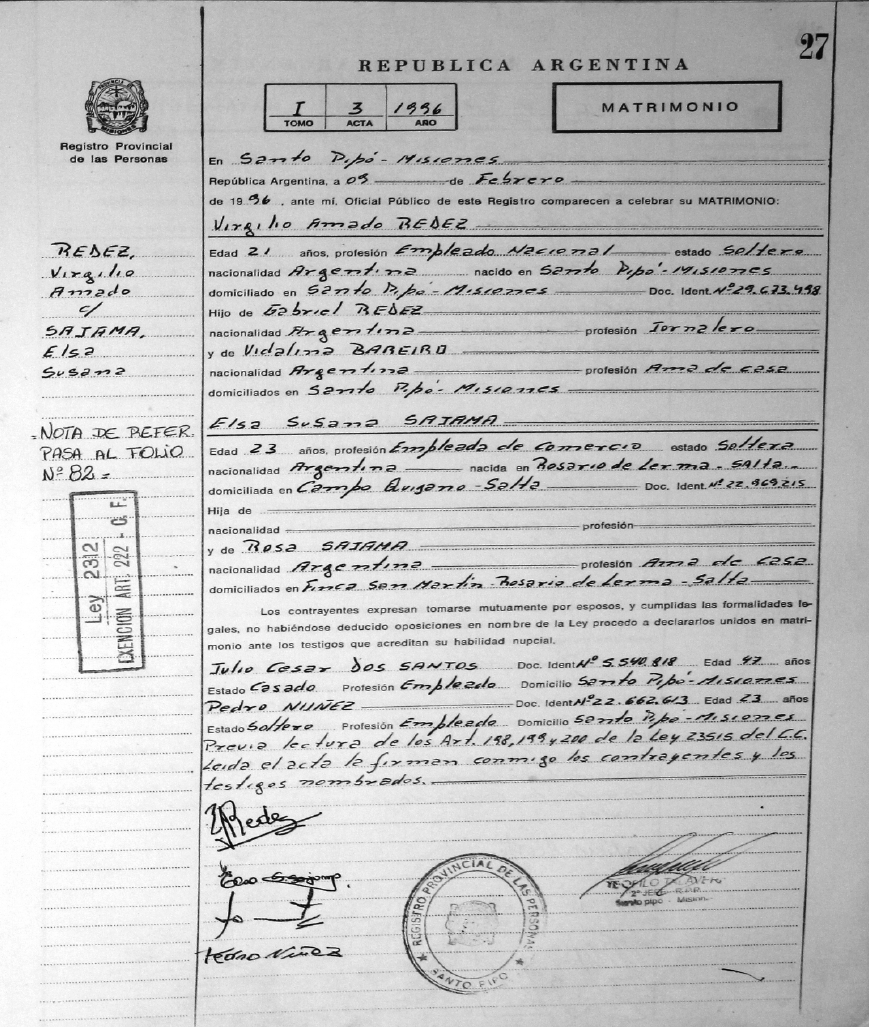 27
REPUBLICA ARGENTINA
I 3 1996
TOMO ACTA AÑO
MATRIMONIO
PROVINCIA DE MISIONES
Registro Provincial
de las Personas
En Santo Pipó - Misiones
República Argentina, a 09 de Febrero
de 1996, ante mí, Oficial Público de este Registro comparecen a celebrar su MATRIMONIO:
Virgilio Amado REDEZ
REDEZ,
Virgilio
Amado
c/
SAJAMA,
Elsa
Susana
Edad 21 años, profesión Empleado Nacional estado Soltero
nacionalidad Argentina nacido en Santo Pipó - Misiones
domiciliado en Santo Pipó - Misiones Doc. Ident. Nº 29.673.498
Hijo de Gabriel REDEZ
nacionalidad Argentina profesión Jornalero
y de Vidalina BAREIRO
nacionalidad Argentina profesión Ama de casa
domiciliados en Santo Pipó - Misiones
Elsa Susana SAJAMA
= NOTA DE REFER.
PASA AL FOLIO
Nº 82 =
Edad 23 años, profesión Empleada de Comercio estado Soltera
nacionalidad Argentina nacida en Rosario de Lerma - Salta
domiciliada en Campo Quijano - Salta Doc. Ident. Nº 22.969.215
Hija de
nacionalidad profesión
y de Rosa SAJAMA
nacionalidad Argentina profesión Ama de casa
domiciliados en Finca San Martín - Rosario de Lerma - Salta
Ley 2312
EXENCION ART. 222 - C. F.
Los contrayentes expresan tomarse mutuamente por esposos, y cumplidas las formalidades le-
gales, no habiéndose deducido oposiciones en nombre de la Ley procedo a declararlos unidos en matri-
monio ante los testigos que acreditan su habilidad nupcial.
Julio Cesar DOS SANTOS Doc. Ident. Nº 5.540.818 Edad 47 años
Estado Casado Profesión Empleado Domicilio Santo Pipó - Misiones
Pedro NUÑEZ Doc. Ident. Nº 22.662.613 Edad 23 años
Estado Soltero Profesión Empleado Domicilio Santo Pipó - Misiones
Previa lectura de los Art. 198, 199 y 200 de la Ley 23515 del C.C.
Leida el acta la firman conmigo los contrayentes y los
testigos nombrados.
Redez
Pedro Nuñez
REGISTRO PROVINCIAL DE LAS PERSONAS
SANTO PIPO
TEOFILO TALAVERA
2º JEFE R.P.P.
Santo Pipó - Misiones